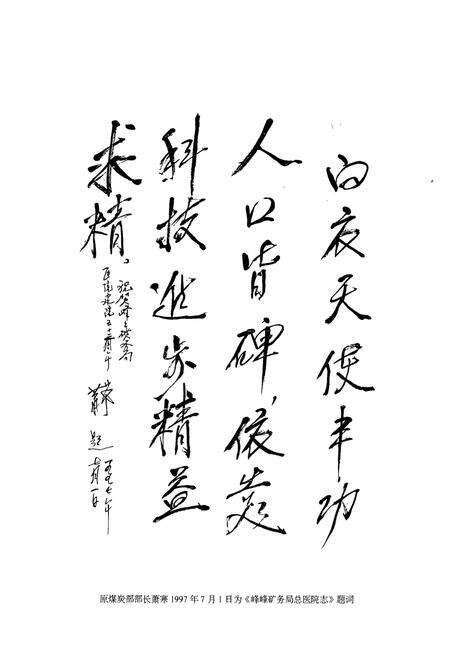 白衣天使丰功
人口皆碑,依靠
科技进步精益
求精。
祝贺峰峰矿务局
医院建院五十周年
萧寒
题
一九九七年
七月一日
原煤炭部部长萧寒1997年7月1日为《峰峰矿务局总医院志》题词